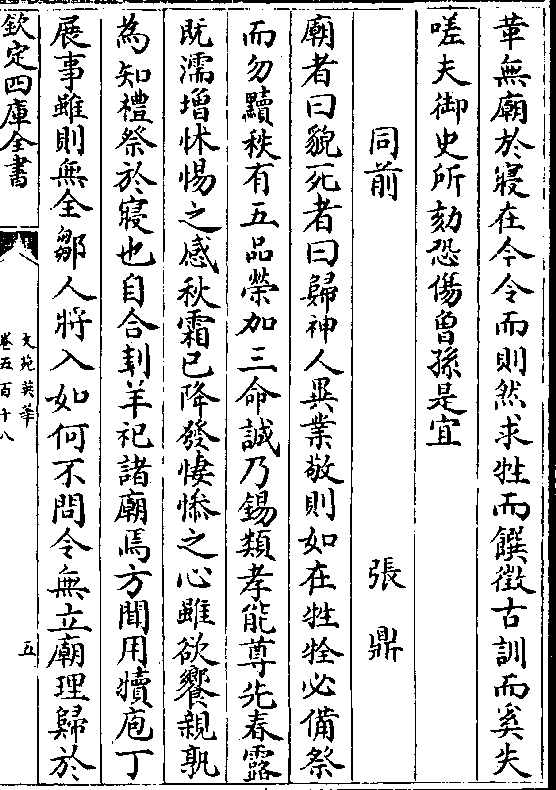 葦無廟於寢在今令而則然求牲而饌徵古訓而奚失
嗟夫御史所劾恐傷曾孫是宜
同前 張鼎
廟者曰貌死者曰歸神人異業敬則如在牲牷必備祭
而勿黷秩有五品榮加三命誠乃錫類孝能尊先春露
既濡增怵惕之感秋霜已降發悽慘之心雖欲饗親孰
為知禮祭於寢也自合刲羊祀諸廟焉方聞用犢庖丁
展事雖則無全鄒人將入如何不問令無立廟理歸於
欽定四庫全書
文苑英華
卷五百十八
五